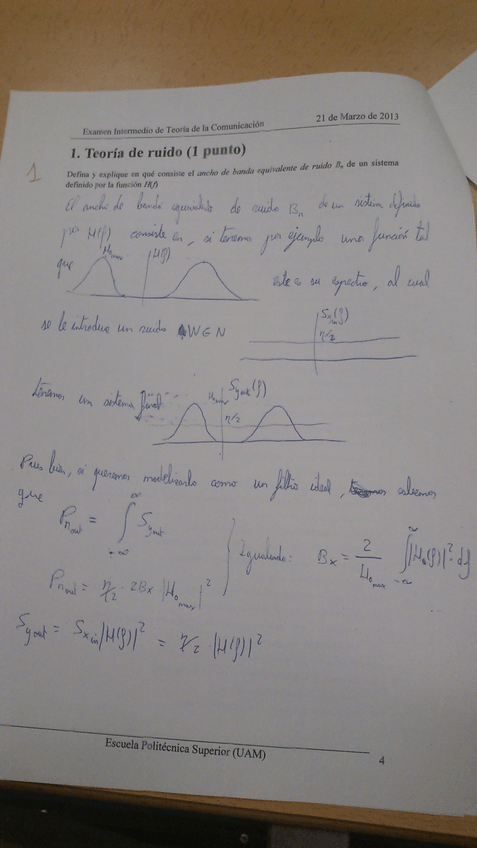 Examen Intermedio de Teoría de la Comunicación 21 de Marzo de 2013
1. Teoría de ruido (1 punto)
1
Defina y explique en qué consiste el ancho de banda equivalente de ruido Bn de un sistema
definido por la función H(f)
El ancho de banda equivalente de ruido Bn de un sistema definido
por H(f) consiste en, si tenemos por ejemplo una función tal
que H0max H(f) este es su espectro, al cual
se le introduce un ruido AWGN Sxin(f) η/2
tenemos un sistema final: H0max Syout(f) η/2
Pues bien, si queremos modelizarlo como un filtro ideal, sabemos
que
Pnout = ∫ Syout
Igualando: Bx = 2/H0max ∫|H0(f)|² df
Pnout = η/2 · 2Bx |H0max|²
Syout = Sxin|H(f)|² = η/2 · |H(f)|²
Escuela Politécnica Superior (UAM)
4